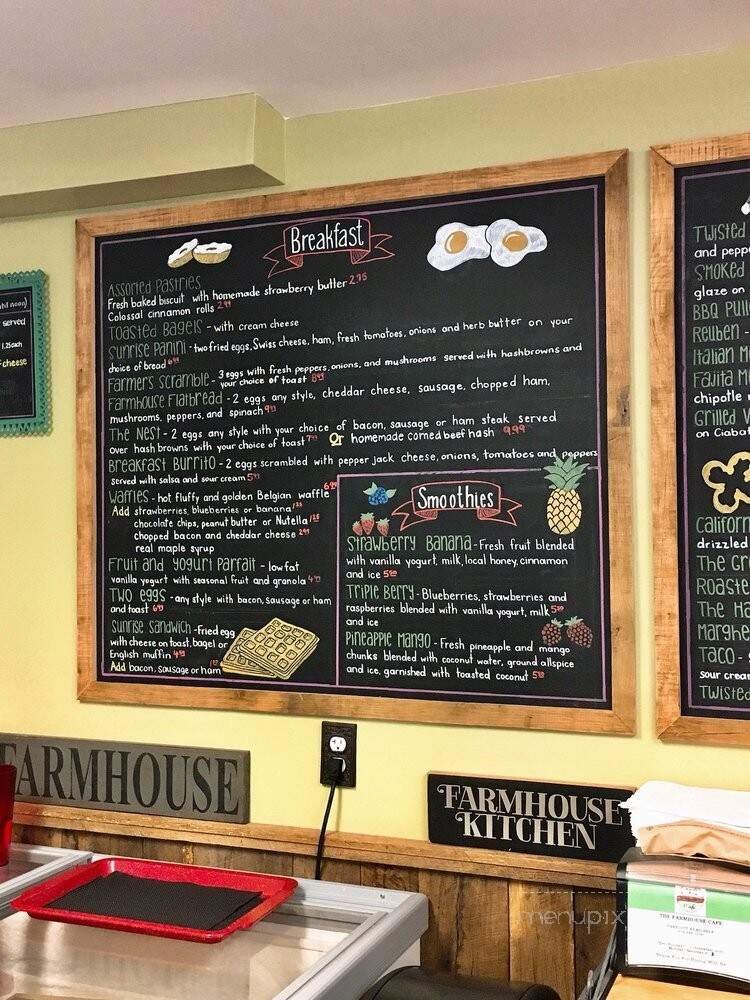 Breakfast
Assorted Pastries
Fresh baked biscuit with homemade strawberry butter 2.75
Colossal cinnamon rolls 2.99
Toasted Bagels - with cream cheese
Sunrise Panini - two fried eggs, Swiss cheese, ham, fresh tomatoes, onions and herb butter on your
choice of bread
Farmer's Scramble - 3 eggs with fresh peppers, onions, and mushrooms served with hashbrowns and
your choice of toast 8.99
Farmhouse Flatbread - 2 eggs any style, cheddar cheese, sausage, chopped ham,
mushrooms, peppers, and spinach
The Nest - 2 eggs any style with your choice of bacon, sausage or ham steak served
over hash browns with your choice of toast Or homemade corned beef hash 9.99
Breakfast Burrito - 2 eggs scrambled with pepper jack cheese, onions, tomatoes and peppers
served with salsa and sour cream
Waffles - hot fluffy and golden Belgian waffle
Add strawberries, blueberries or banana
chocolate chips, peanut butter or Nutella
chopped bacon and cheddar cheese
real maple syrup
Fruit and Yogurt Parfait - low fat
vanilla yogurt with seasonal fruit and granola
Two Eggs - any style with bacon, sausage or ham
and toast
Sunrise Sandwich - Fried egg
with cheese on toast, bagel or
English muffin
Add bacon, sausage or ham
Smoothies
Strawberry Banana - Fresh fruit blended
with vanilla yogurt, milk, local honey, cinnamon
and ice
Triple Berry - Blueberries, strawberries and
raspberries blended with vanilla yogurt, milk
and ice
Pineapple Mango - Fresh pineapple and mango
chunks blended with coconut water, ground allspice
and ice, garnished with toasted coconut
noon)
served
1.25 each
cheese
Twisted
and pepp
Smoked
glaze on
BBQ Pull
Reuben -
Italian M
Fajita M
chipotle
Grilled V
on Ciaba
Californ
drizzled
The Gr
Roaste
The Ha
Marghe
Taco -
sour crea
Twisted
FARMHOUSE
FARMHOUSE
KITCHEN
THE FARMHOUSE CAFE
menupix